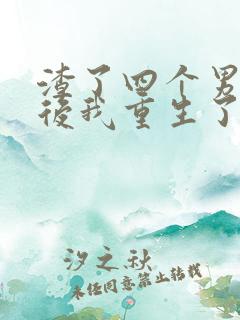 渣了四个男
後我重生了
汐之秋
未经同意禁止转载